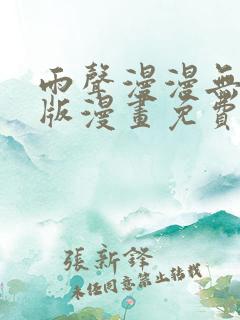 雨聲漫漫無
版漫畫免費
張新鋒
未經同意禁止轉載